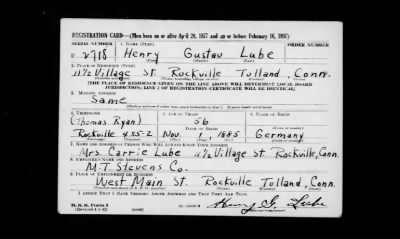 REGISTRATION CARD—(Men born on or after April 28, 1877 and on or before February 16, 1897)
SERIAL NUMBER 1. NAME (Print)
U 2718 Henry Gustav Lube
(First) (Middle) (Last)
2. PLACE OF RESIDENCE (Print)
11½ Village St. Rockville Tolland, Conn.
[THE PLACE OF RESIDENCE GIVEN ON THE LINE ABOVE WILL DETERMINE LOCAL BOARD
JURISDICTION; LINE 2 OF REGISTRATION CERTIFICATE WILL BE IDENTICAL]
3. MAILING ADDRESS
Same
4. TELEPHONE 5. AGE IN YEARS 6. PLACE OF BIRTH
(Thomas Ryan) 56
DATE OF BIRTH
Rockville 455-2 Nov. 1 1885 Germany
7. NAME AND ADDRESS OF PERSON WHO WILL ALWAYS KNOW YOUR ADDRESS
Mrs. Carrie Lube 11½ Village St. Rockville, Conn.
8. EMPLOYER'S NAME AND ADDRESS
M.T. Stevens Co.
9. PLACE OF EMPLOYMENT OR BUSINESS
West Main St. Rockville Tolland, Conn.
I AFFIRM THAT I HAVE VERIFIED ABOVE ANSWERS AND THAT THEY ARE TRUE.
D. S. S. Form 1
Henry G. Lube